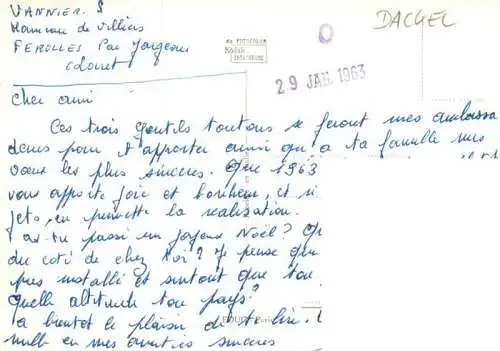 VANNIER. S
Hameau de Villiers
FEROLLES Par Jargeau
Loiret
DACKEL
Kodak
29 JAN. 1963
Cher ami
Ces trois gentils toutous se feront mes ambassa
deurs pour t'apporter ainsi qu'à ta famille mes
vœux les plus sincères. Que 1963
vous apporte joie et bonheur, et si
la réalisation.
as-tu passé un joyeux Noël?
du coté de chez toi? Je pense que
pres installé et surtout que ton
Quelle altitude ton pays?
a bientôt le plaisir de te lire.
en mes amitiés sincères